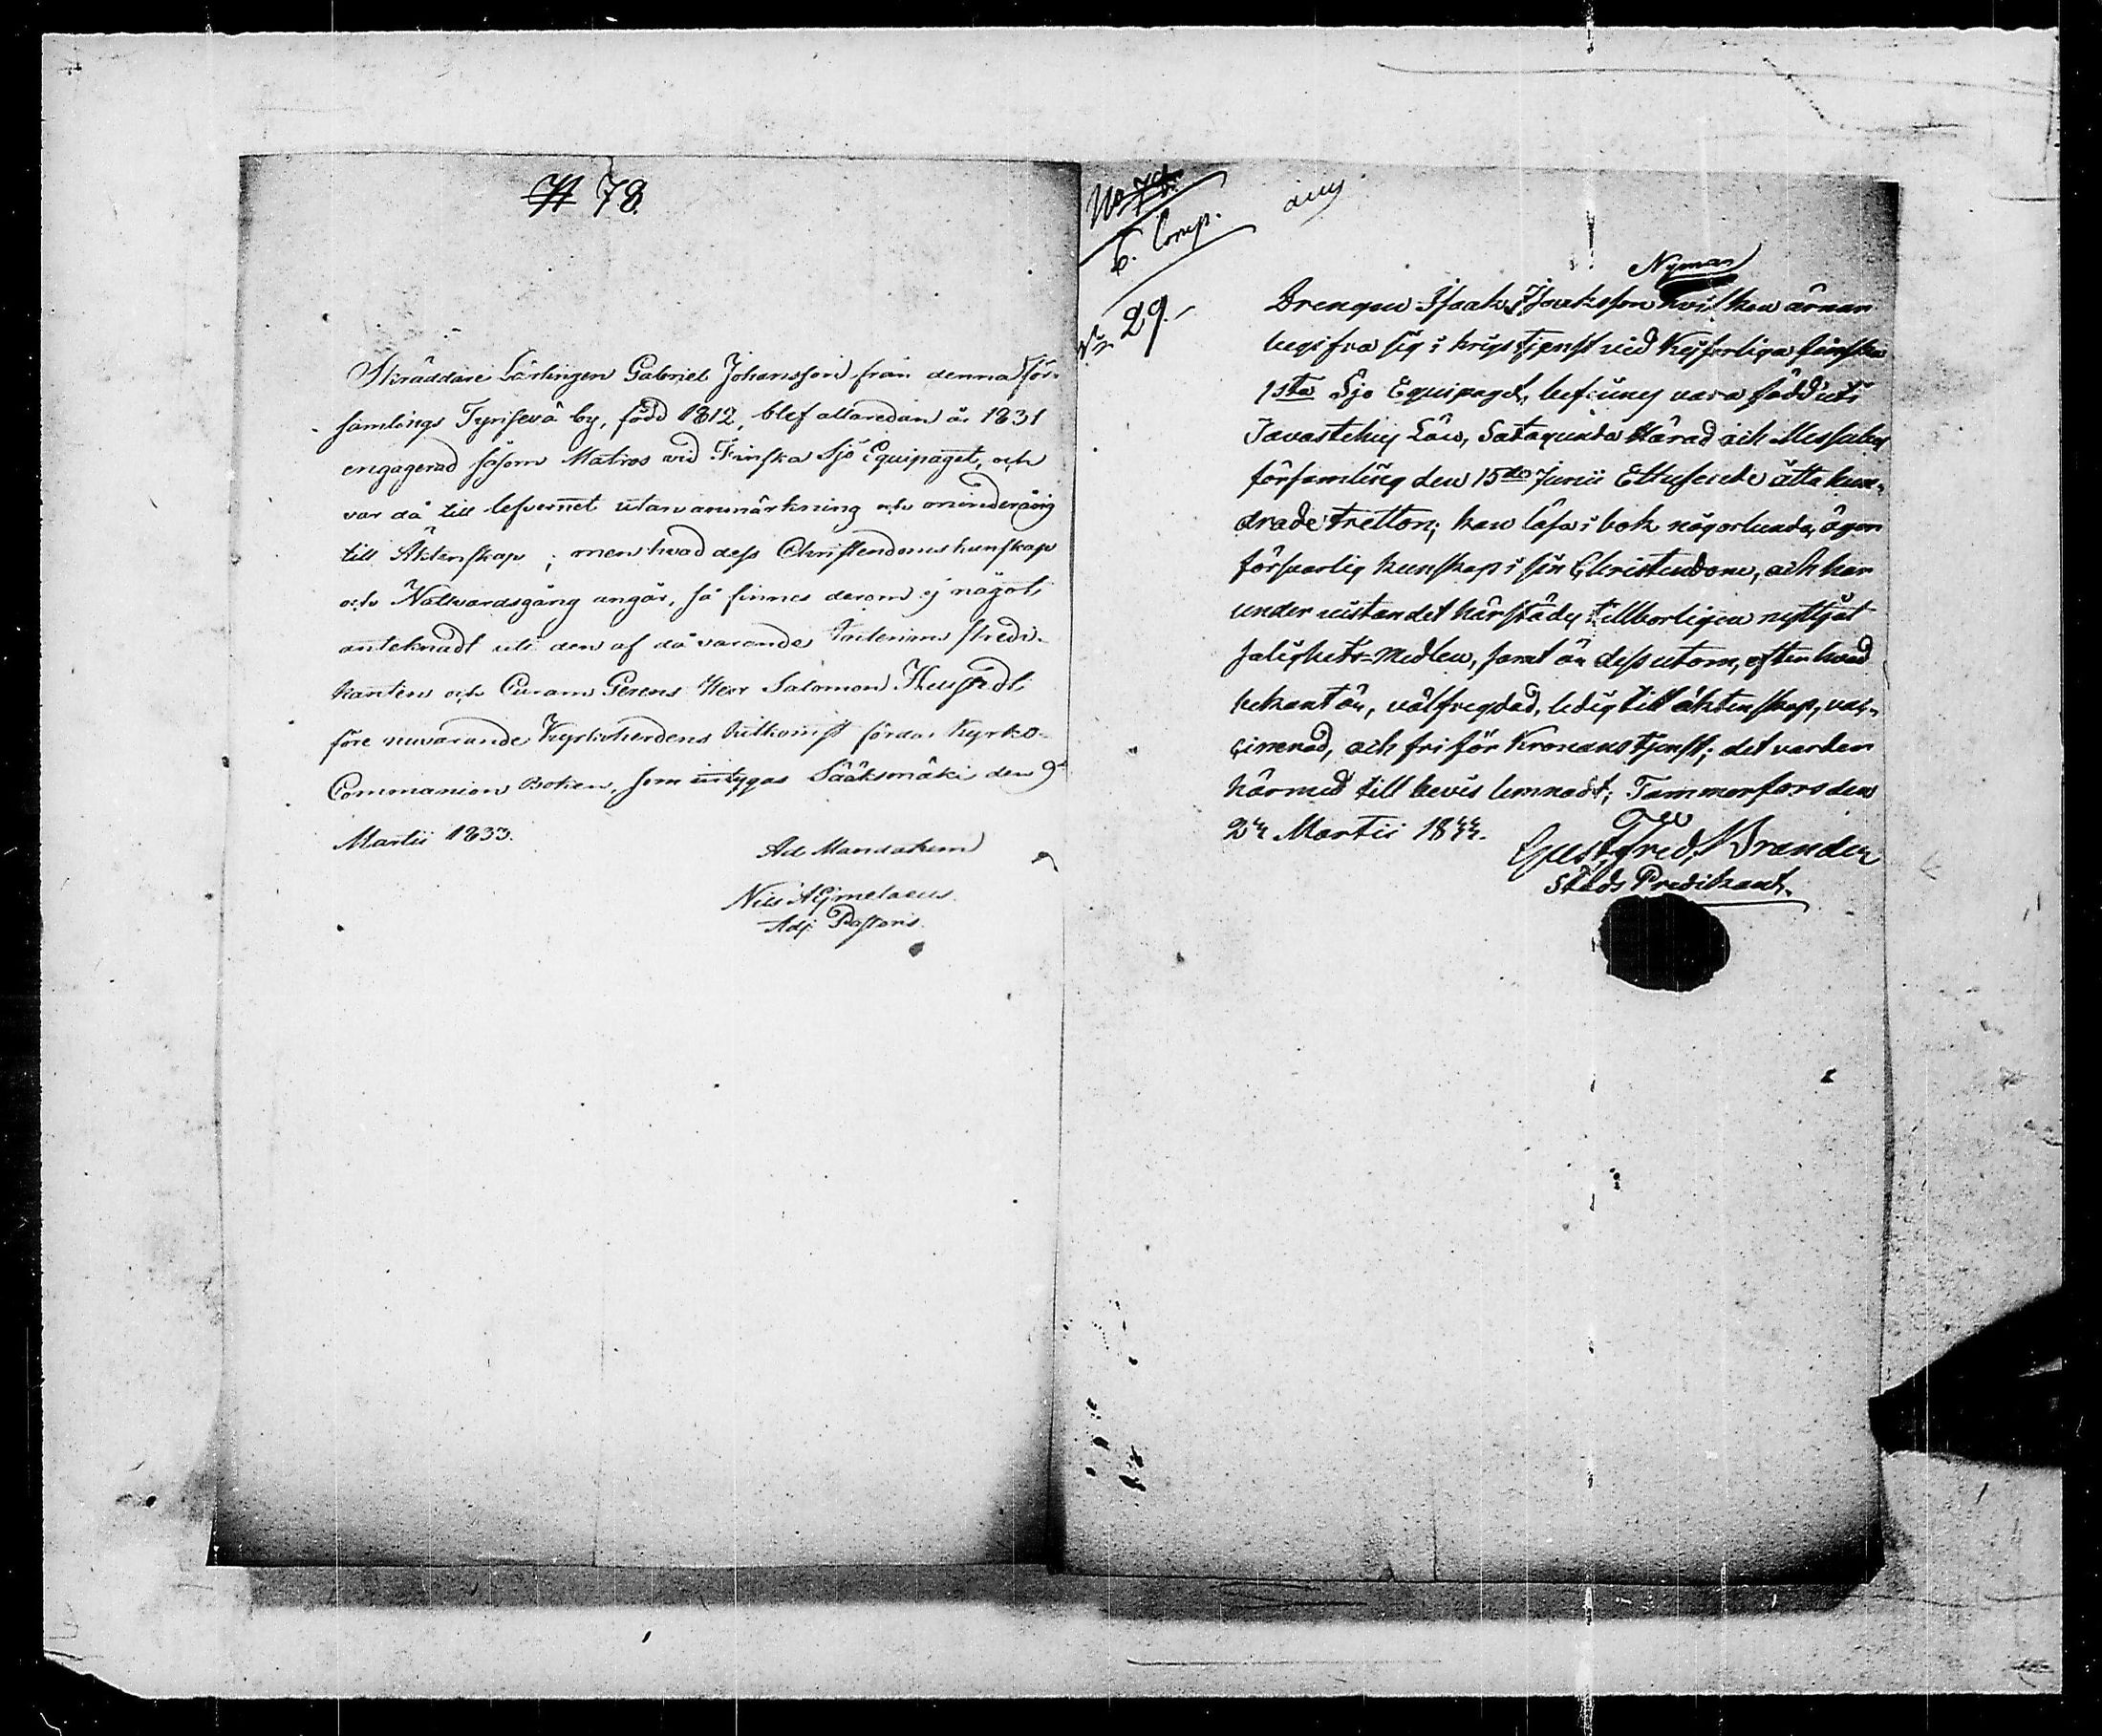 78.
Skräddare Lärlingen Gabriel Johansson från denna för-
samlings Tyrisevä by, född 1812, blef allaredan år 1831
engagerad såsom Matros vid Finska Sjö Equipaget, och
var då till lefvernet utan anmärkning och minderårig
till Äktenskap; men hvad dess Christendoms kunskap
och Nattvardsgång angår, så finnes derom ej något
anteknadt uti den af då varande Predi-
kanten och Curam Gerens Herr Salomon
före nuvarande Kyrkoherdens hitkomst förda Kyrko-
Communion Boken, som intygas Sääksmäki den 9de
Martii 1833.
Ad Mandatum
Nils Aejmelaeus.
Adj. Pastoris.
No 78.
6. Comp.
No 29.
Nyman
Drengen Isaak Isaaksson hvilken ärnar
begifva sig i krigstjenst vid Kejserliga Finska
1sta Sjö Equipaget, befines vara född uti
Tavastehus Län, Satagunda Härad och Messuby
församling den 15de Junii Ettusende åtta hun-
drade tretton; kan läsa i bok någorlunda, äger
försvarlig kunskap i sin Christendom, och har
under vistandet härstädes tillborligen nyttjat
Salighets-Medlen, samt är dessutom, efter hvad
bekant är, välfregdad, ledig till äktenskap, vac-
cinerad, och fri för Kronans tjenst; det varder
härmed till bevis lemnadt; Tammerfors den
Martii 18
Gust. Fred. Brander
Stads Predikant.